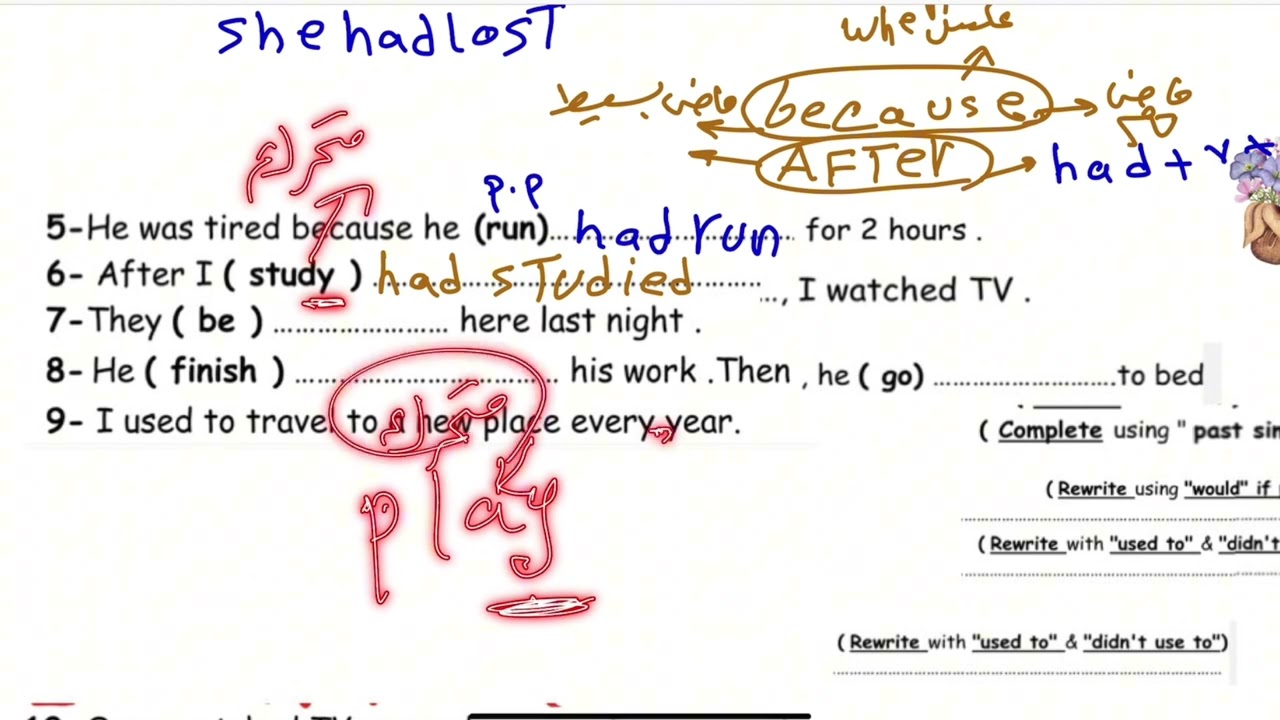 she had lost
because
ماضي بسيط
ماضي
AFTEr
had +
p.p
5-He was tired because he (run)............... had run ......... for 2 hours .
6- After I ( study ) ......... had sTudied ............, I watched TV .
7-They ( be ) ........................ here last night .
8- He ( finish ) .................................... his work .Then , he ( go) .........................to bed
9- I used to travel to a new place every year.
متحرك
play
( Complete using " past sin
( Rewrite using "would" if
( Rewrite with "used to" & "didn't
( Rewrite with "used to" & "didn't use to")